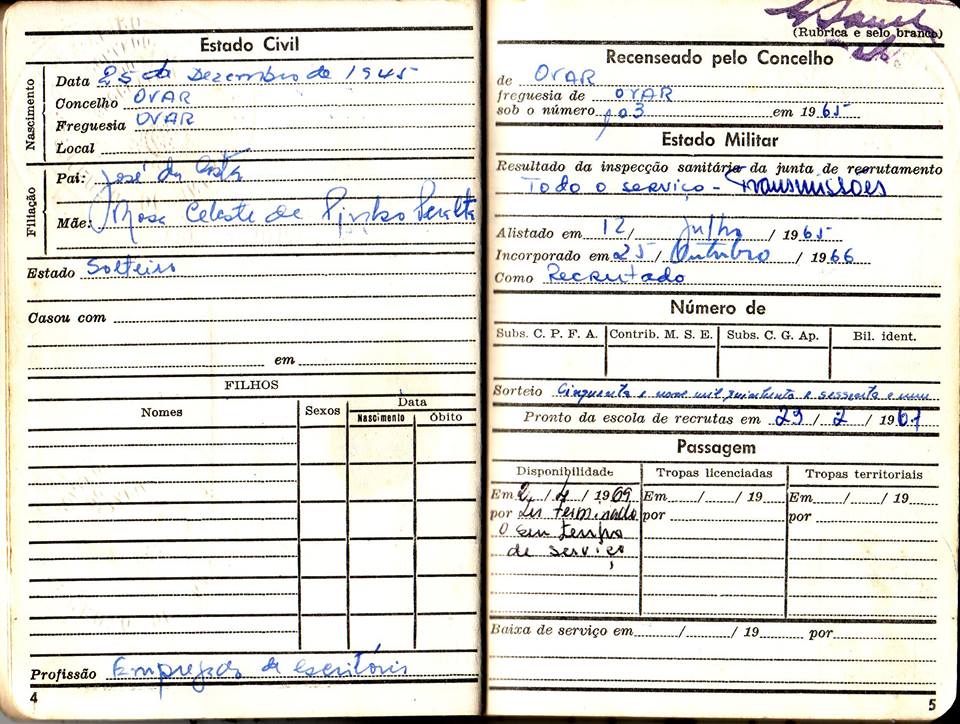 Estado Civil
Nascimento
Data 25 de Dezembro de 1945
Concelho OVAR
Freguesia OVAR
Local
Filiação
Pai: José da Costa
Mãe: Rosa Celeste de Pinho Peralta
Estado Solteiro
Casou com
em
FILHOS
Nomes Sexos Data
Nascimento Óbito
Profissão Empregado de escritório
4
(Rubrica e selo branco)
Recenseado pelo Concelho
de OVAR
freguesia de OVAR
sob o número 103 em 1965
Estado Militar
Resultado da inspecção sanitária da junta de recrutamento
Todo o serviço - Transmissões
Alistado em 12 / Julho / 1965
Incorporado em 25 / Outubro / 1966
Como Recrutado
Número de
Subs. C. P. F. A. Contrib. M. S. E. Subs. C. G. Ap. Bil. ident.
Sorteio Cinquenta e nove mil quinhentos e sessenta e um
Pronto da escola de recrutas em 29 / 2 / 1967
Passagem
Disponibilidade Tropas licenciadas Tropas territoriais
Em 2 / 4 / 1969 Em / / 19 Em / / 19
por ter terminado por por
o seu tempo
de serviço
Baixa de serviço em / / 19 por
5